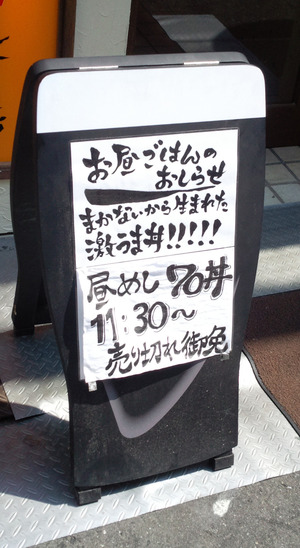 お昼ごはんの
おしらせ
まかないから生まれた
激うま丼!!!!!
昼めし 70丼
11:30～
売り切れ御免